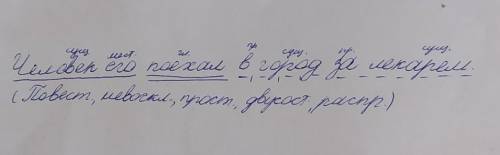 сущ. мест. гл. пр. сущ. пр. сущ.
Человек его поехал в город за лекарем.
(Повест., невоскл., прост., двусост., распр.)